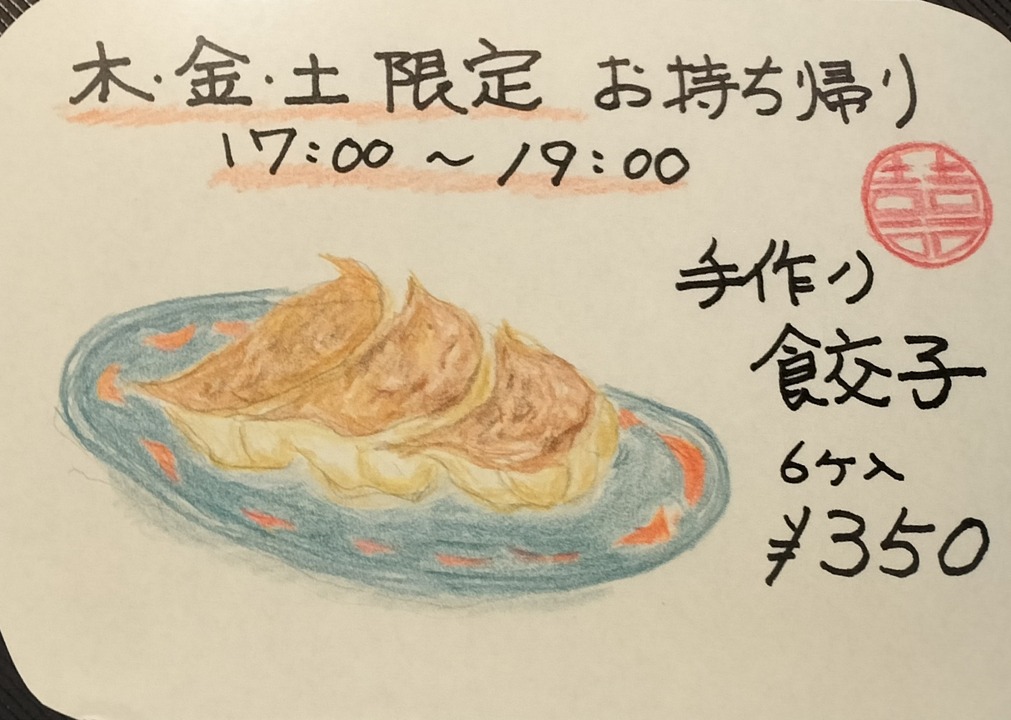 木・金・土 限定 お持ち帰り
17:00 ~ 19:00
囍
手作り
餃子
6ケ入
¥350